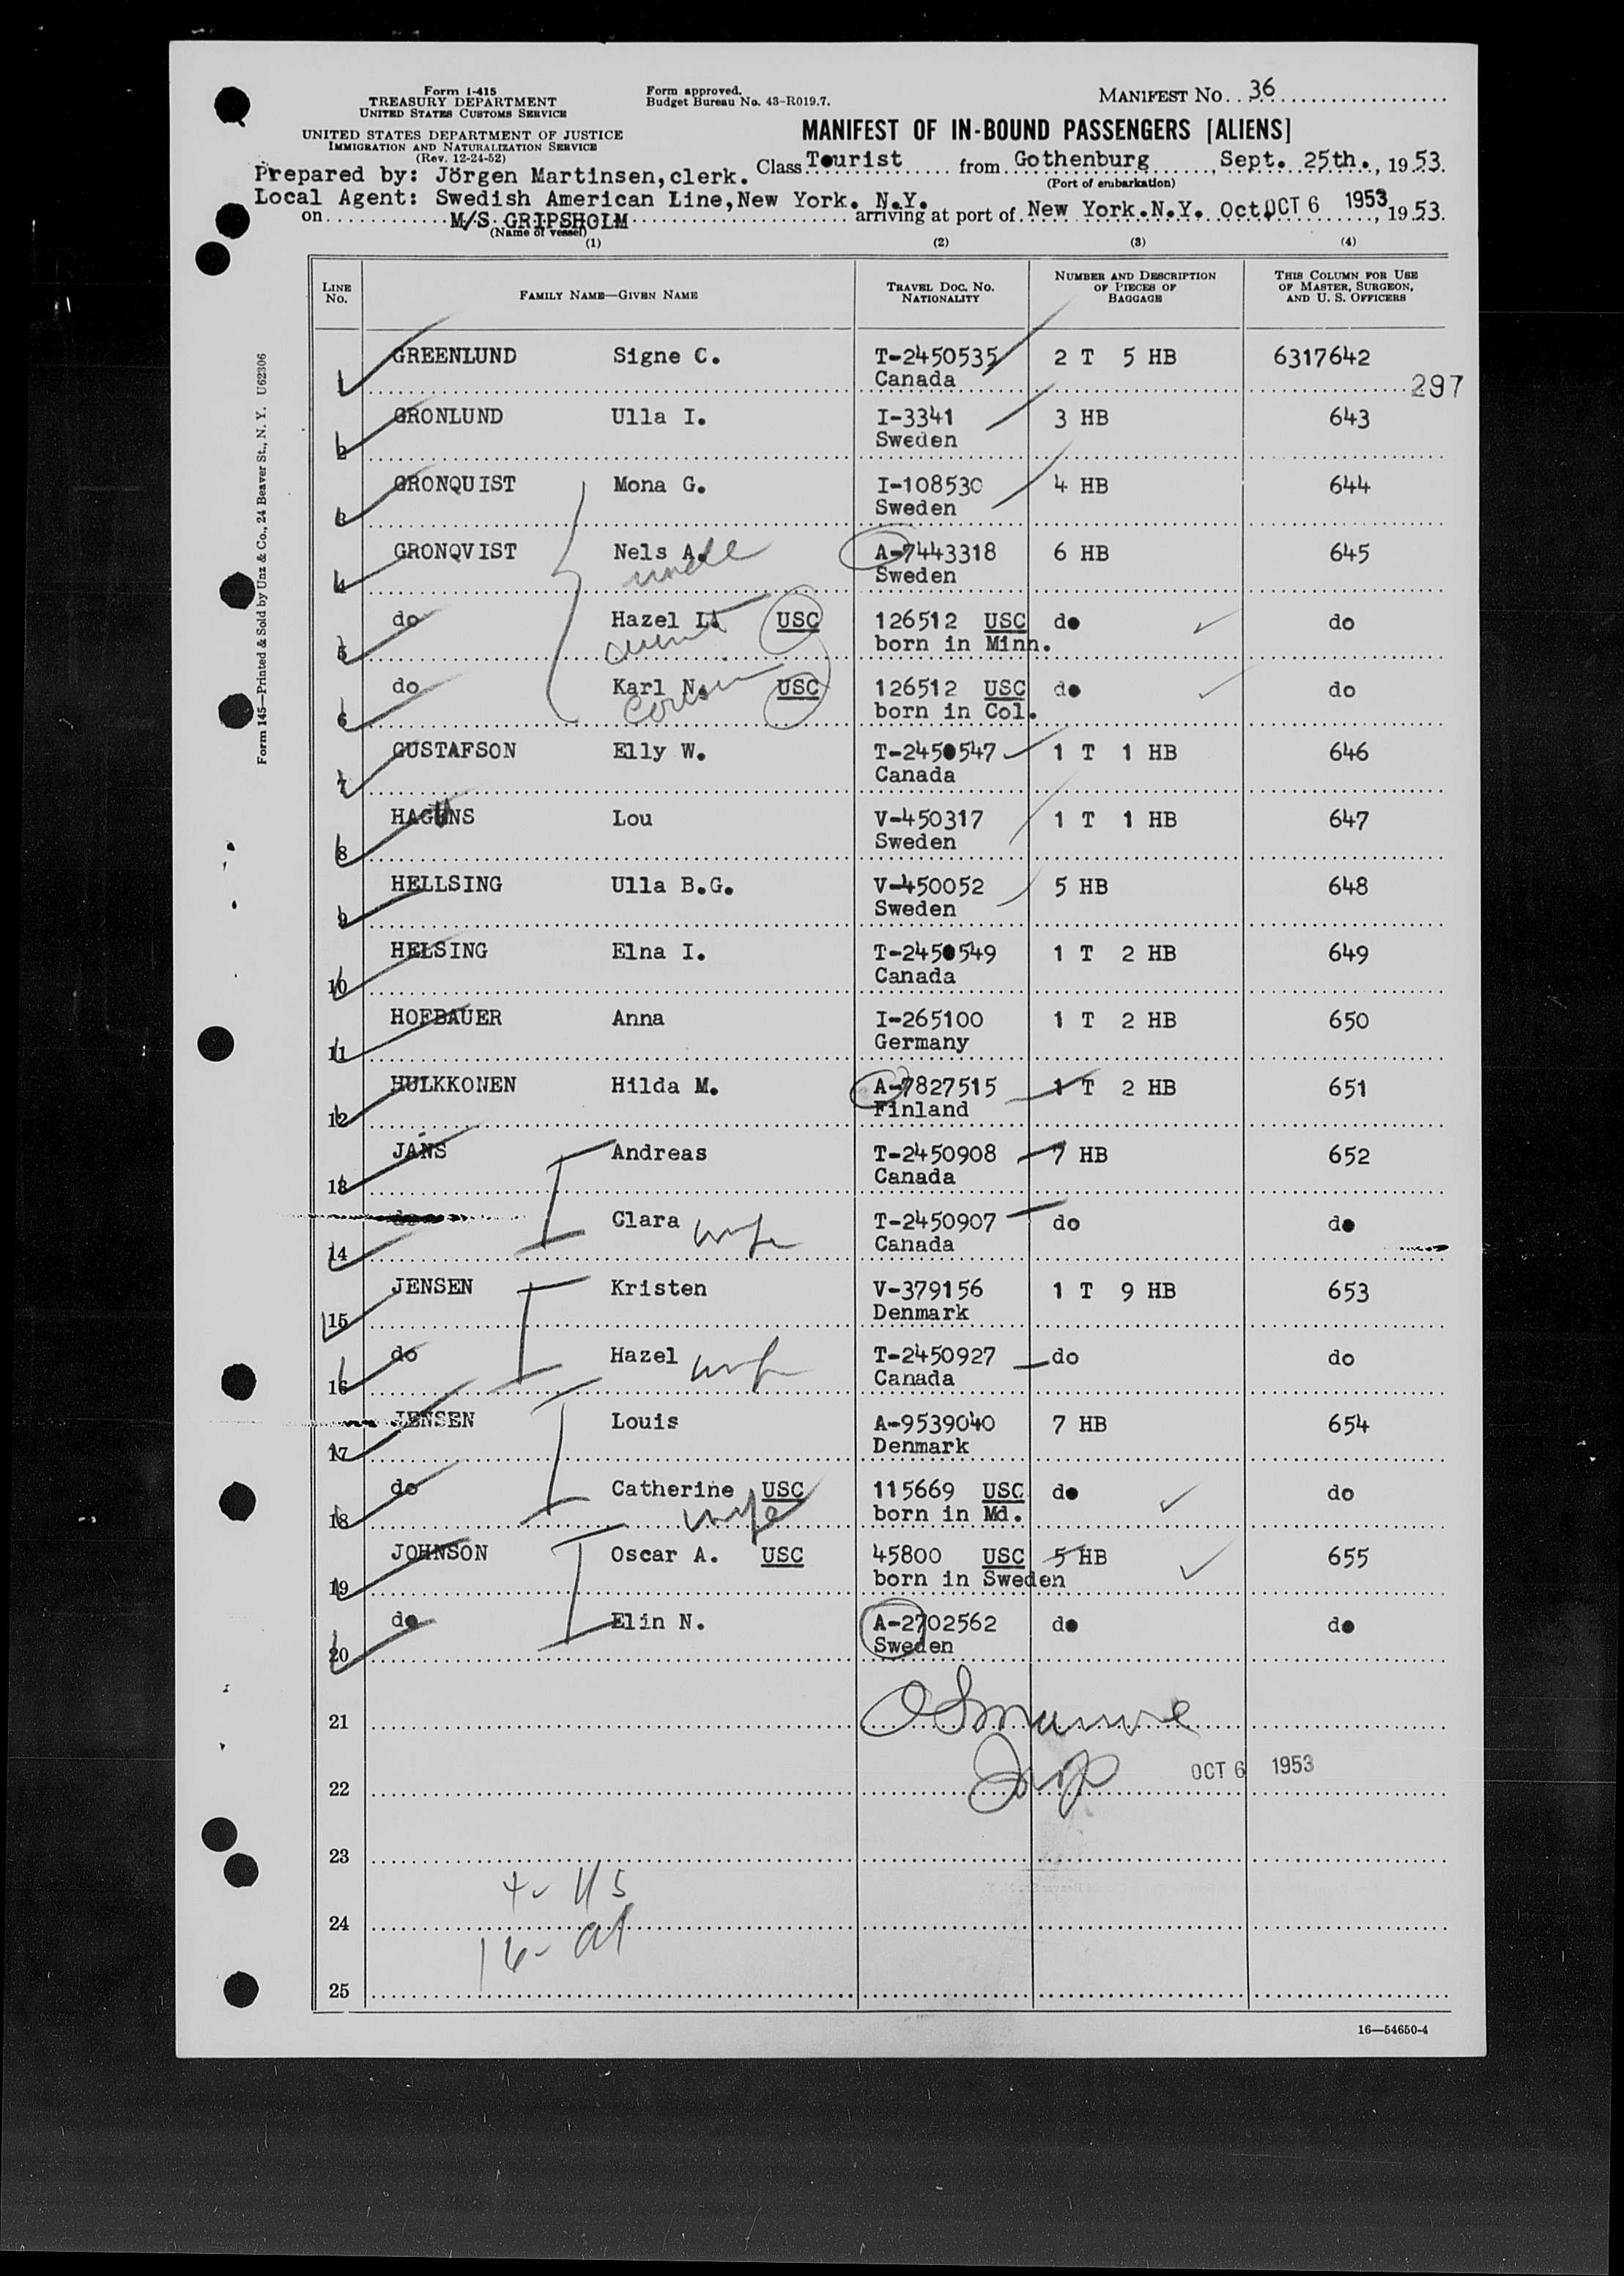 Form I-415
TREASURY DEPARTMENT
UNITED STATES CUSTOMS SERVICE
UNITED STATES DEPARTMENT OF JUSTICE
IMMIGRATION AND NATURALIZATION SERVICE
(Rev. 12-24-52)
Form approved.
Budget Bureau No. 43-R019.7.
MANIFEST NO. 36
MANIFEST OF IN-BOUND PASSENGERS [ALIENS]
Prepared by: Jörgen Martinsen, clerk. Class Tourist from Gothenburg, Sept. 25th., 1953.
(Port of embarkation)
Local Agent: Swedish American Line, New York. N.Y.
on M/S GRIPSHOLM arriving at port of New York.N.Y. Oct. OCT 6 1953, 1953.
(Name of vessel)
(1) (2) (3) (4)
LINE NO. FAMILY NAME—GIVEN NAME TRAVEL DOC. NO. NATIONALITY NUMBER AND DESCRIPTION OF PIECES OF BAGGAGE THIS COLUMN FOR USE OF MASTER, SURGEON, AND U. S. OFFICERS
1 GREENLUND Signe C. T-2450535 2 T 5 HB 6317642
Canada 297
2 GRONLUND Ulla I. I-3341 3 HB 643
Sweden
3 GRONQUIST Mona G. I-108530 4 HB 644
Sweden
4 GRONQVIST Nels A. A-7443318 6 HB 645
uncle Sweden
5 do Hazel L. USC 126512 USC do do
aunt born in Minn.
6 do Karl N. USC 126512 USC do do
cousin born in Col.
7 GUSTAFSON Elly W. T-2450547 1 T 1 HB 646
Canada
8 HAGUNS Lou V-450317 1 T 1 HB 647
Sweden
9 HELLSING Ulla B.G. V-450052 5 HB 648
Sweden
10 HELSING Elna I. T-2450549 1 T 2 HB 649
Canada
11 HOFBAUER Anna I-265100 1 T 2 HB 650
Germany
12 HULKKONEN Hilda M. A-7827515 1 T 2 HB 651
Finland
13 JANS Andreas T-2450908 7 HB 652
Canada
14 do Clara wife T-2450907 do do
Canada
15 JENSEN Kristen V-379156 1 T 9 HB 653
Denmark
16 do Hazel wife T-2450927 do do
Canada
17 JENSEN Louis A-9539040 7 HB 654
Denmark
18 do Catherine USC 115669 USC do do
wife born in Md.
19 JOHNSON Oscar A. USC 45800 USC 5 HB 655
born in Sweden
20 do Elin N. A-2702562 do do
Sweden
21
22 OCT 6 1953
23
24
25
16—54650-4
Form 145—Printed & Sold by Unz & Co., 24 Beaver St., N. Y. U62306